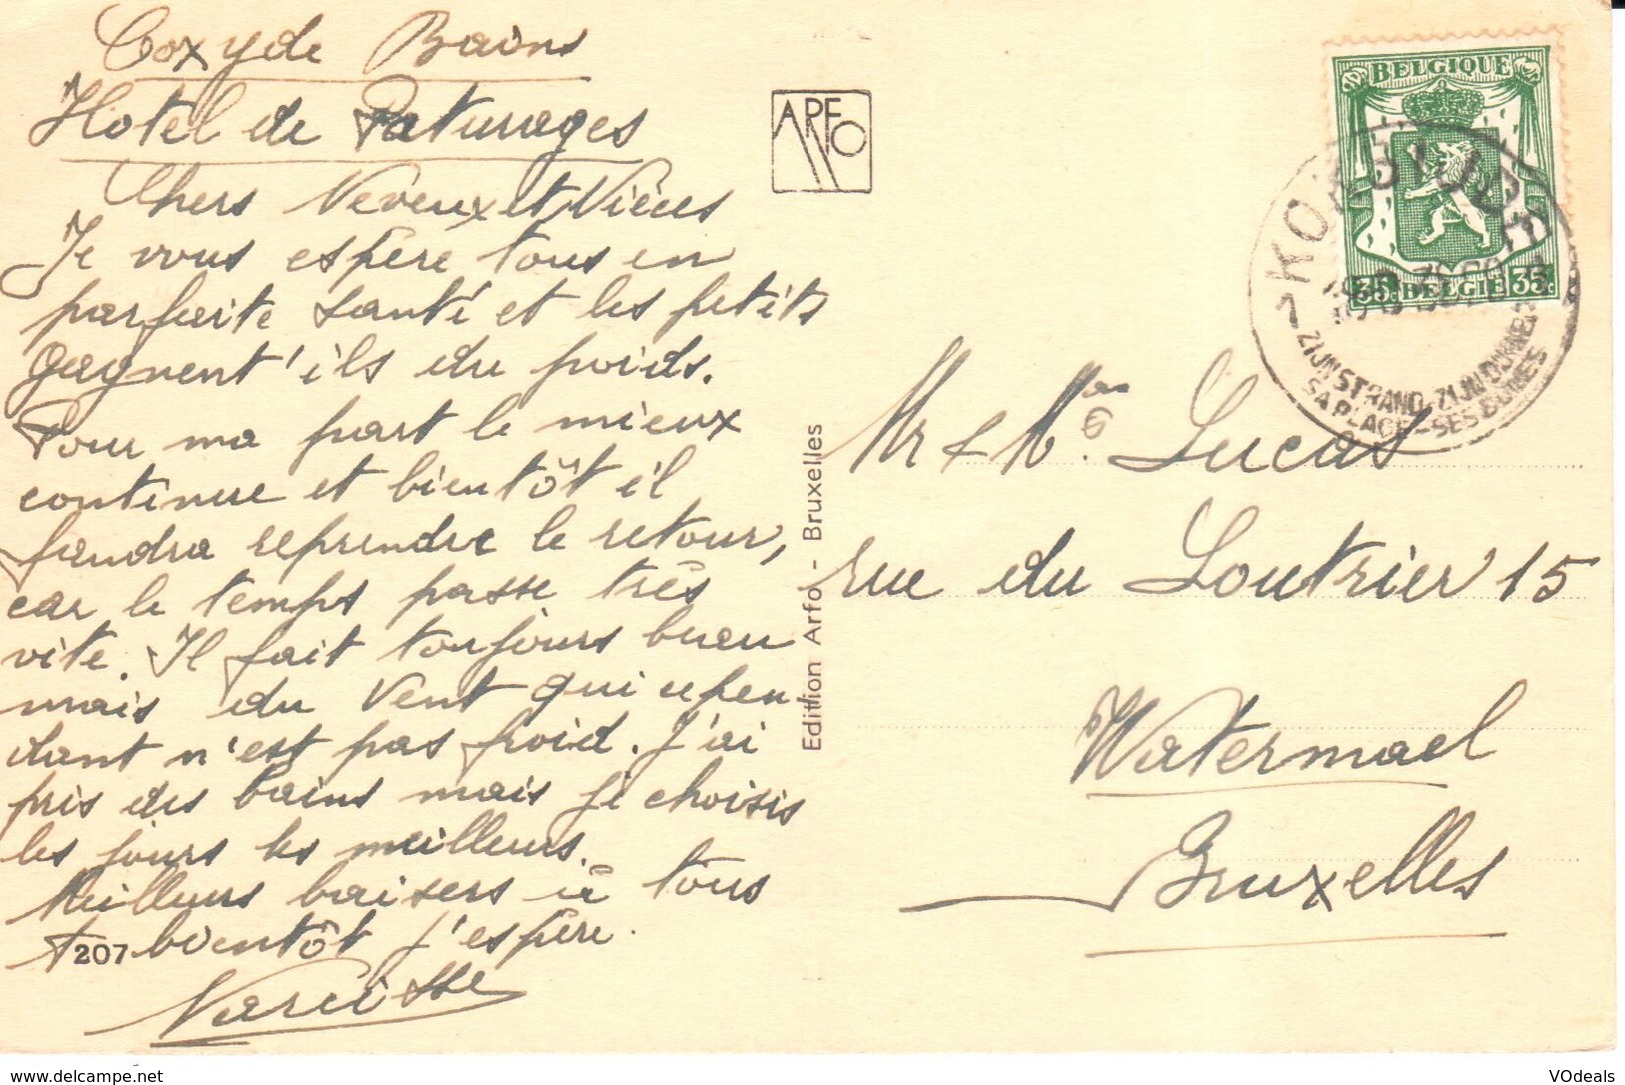 Coxyde Bains
Hotel de Paturages
Chers Neveux et Nièces
Je vous espère tous en
parfaite santé et les petits
gagnent'ils du poids.
Pour ma part le mieux
continue et bientôt il
faudra reprendre le retour,
car le temps passe très
vite. Il fait toujours beau
mais du vent qui cepen-
dant n'est pas froid. J'ai
pris des bains mais je choisis
les jours les meilleurs.
Meilleurs baisers à tous
A bientôt j'espère.
207
Narcisse
ARFO
Edition Arfo - Bruxelles
BELGIQUE
35 c. BELGIE 35 c.
KOKSIJDE
ZIJN STRAND - ZIJN DUINEN
SA PLAGE - SES DUNES
Mr & Me Lucas
rue du Loutrier 15
Watermael
Bruxelles
www.delcampe.net
VOdeals